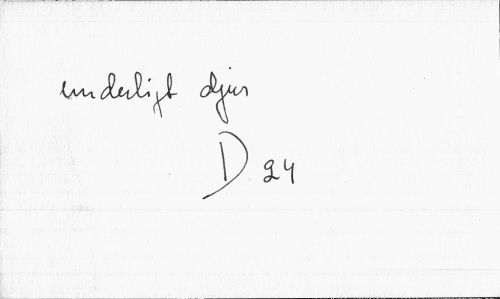 underligt djur
D 24